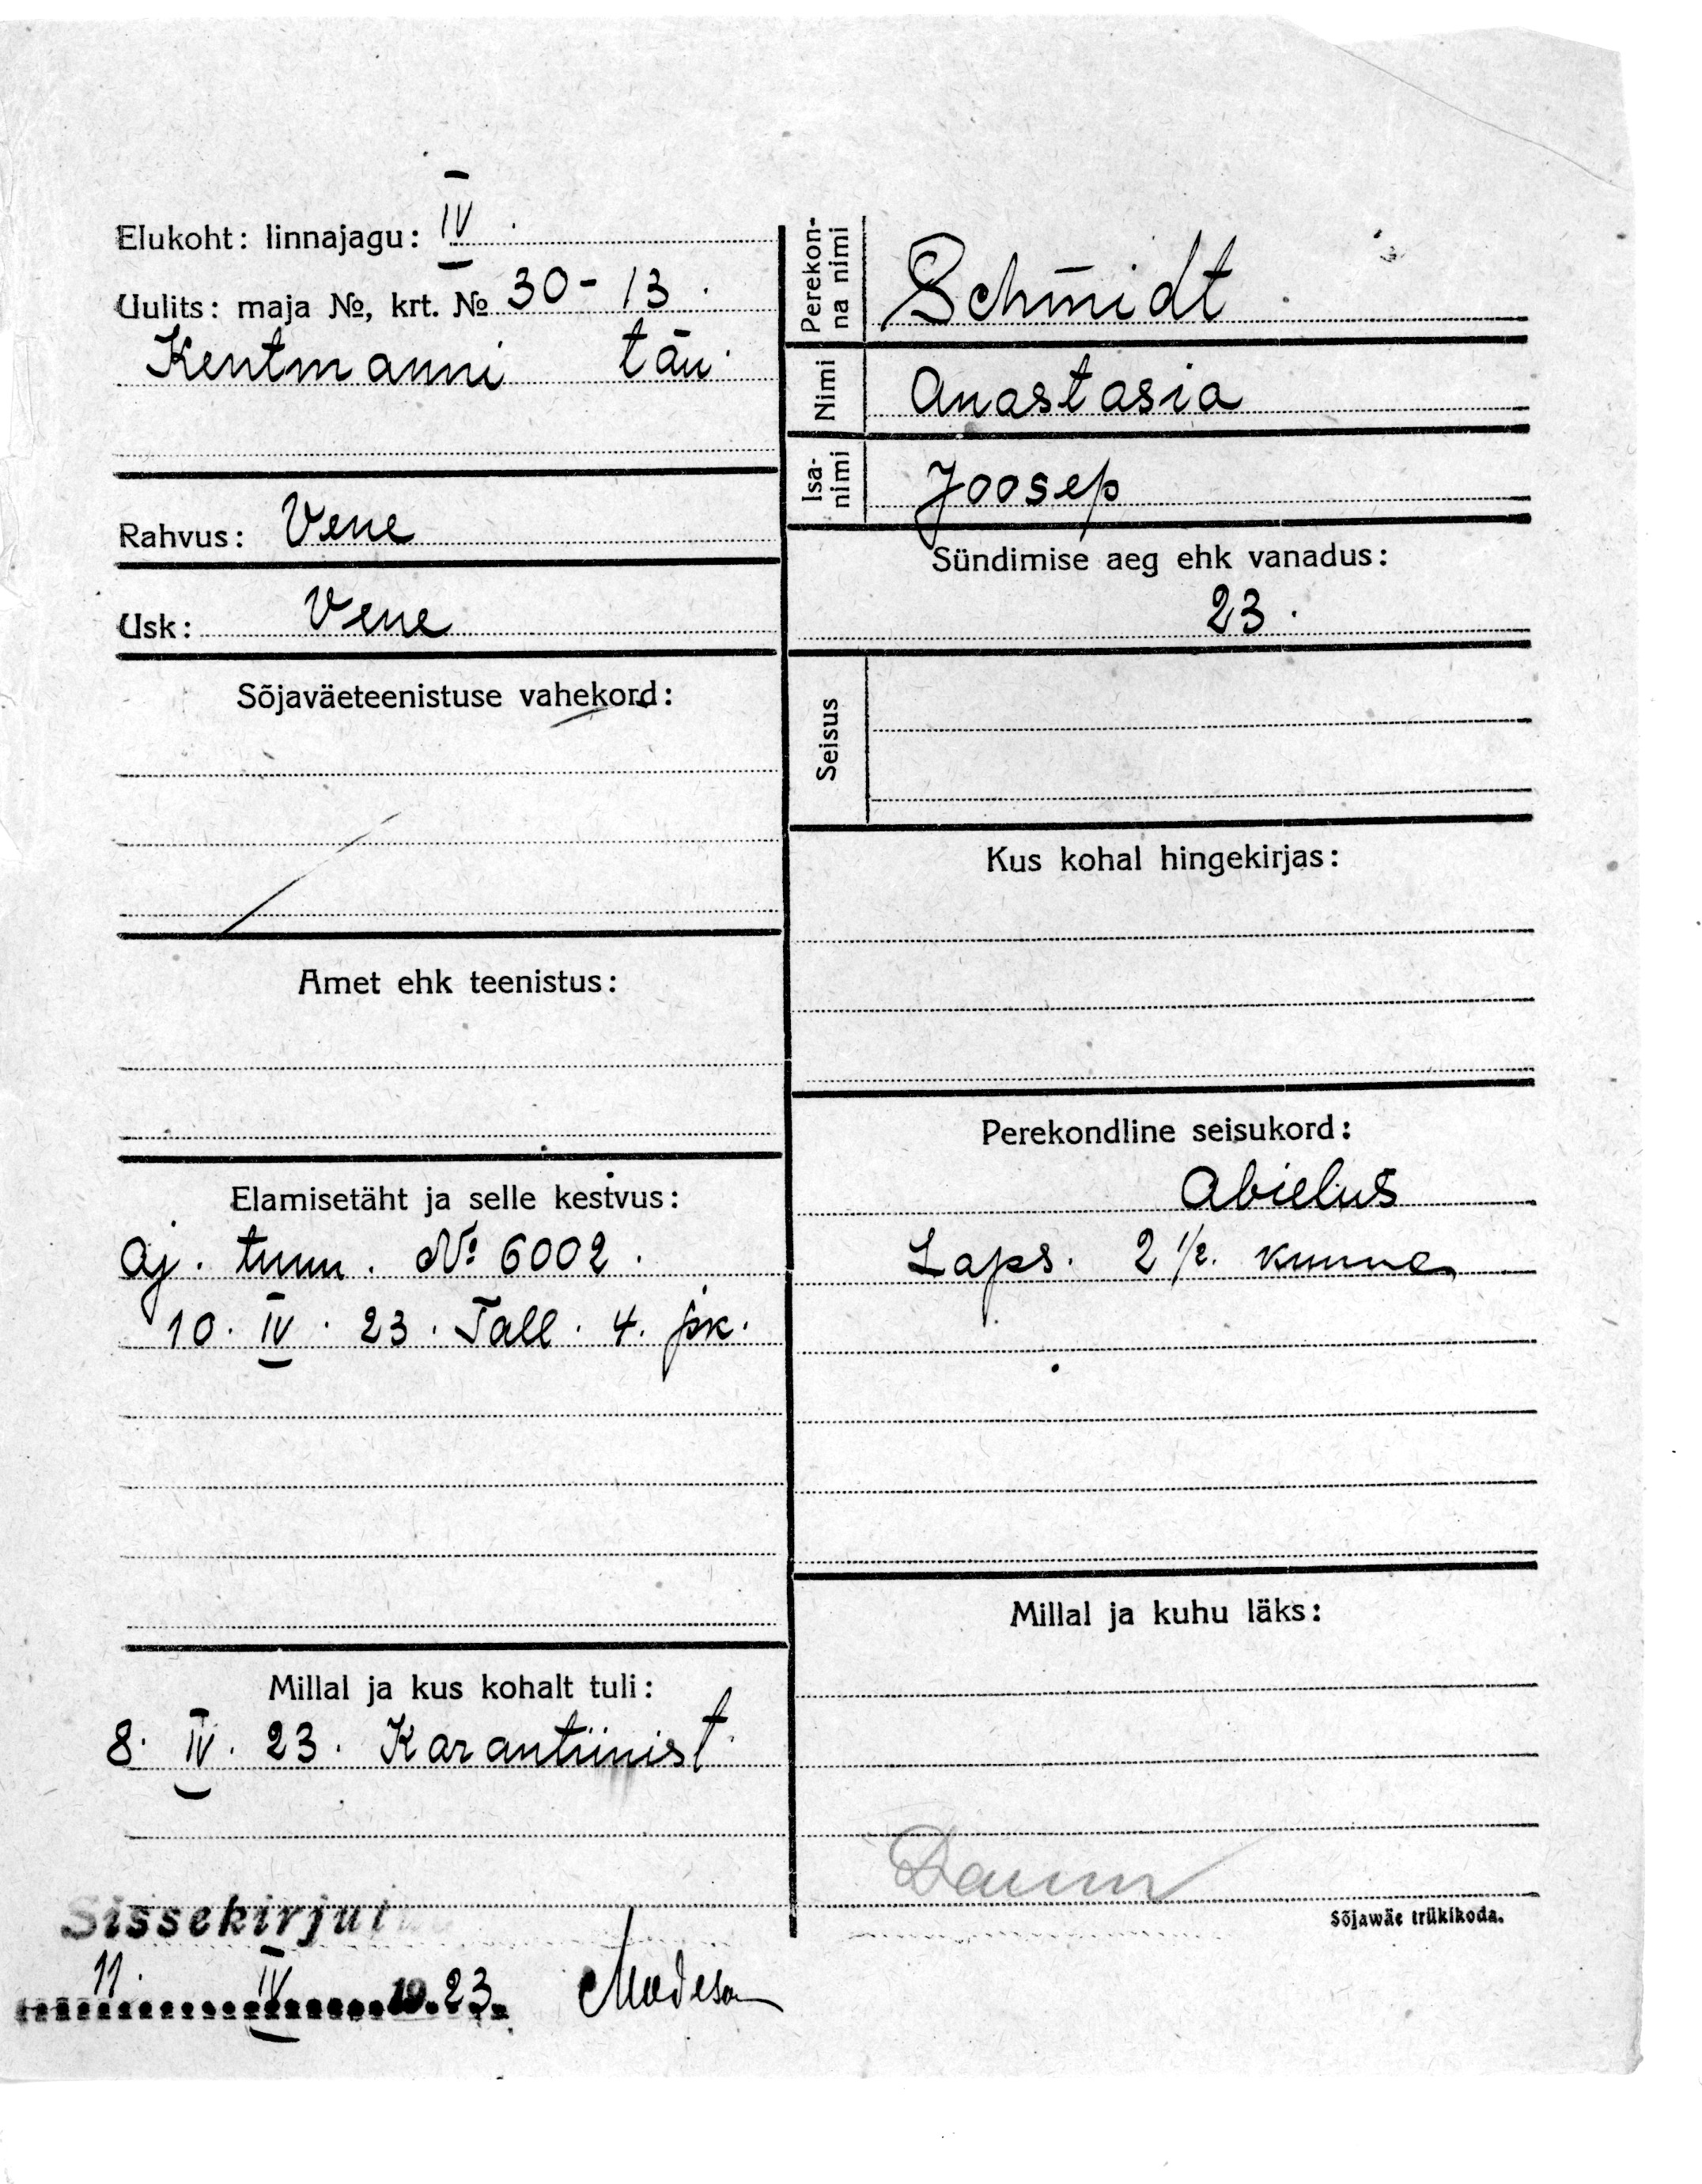 Elukoht: linnajagu: IV.
Uulits: maja №, krt. № 30-13.
Kentmanni tän.
Rahvus: Vene
Usk: Vene
Sõjaväeteenistuse vahekord:
Amet ehk teenistus:
Elamisetäht ja selle kestvus:
Aj. tunn. № 6002.
10. IV. 23. Tall. 4. jsk.
Millal ja kus kohalt tuli:
8. IV. 23. Karantiinist.
Sissekirjut
11. IV 1923.
Perekon-
na nimi
Schmidt.
Nimi
Anastasia
Isa-
nimi
Joosep
Sündimise aeg ehk vanadus:
23.
Seisus
Kus kohal hingekirjas:
Perekondline seisukord:
Abielus
Laps. 2 1/2. kuune
Millal ja kuhu läks:
Sõjawäe trükikoda.